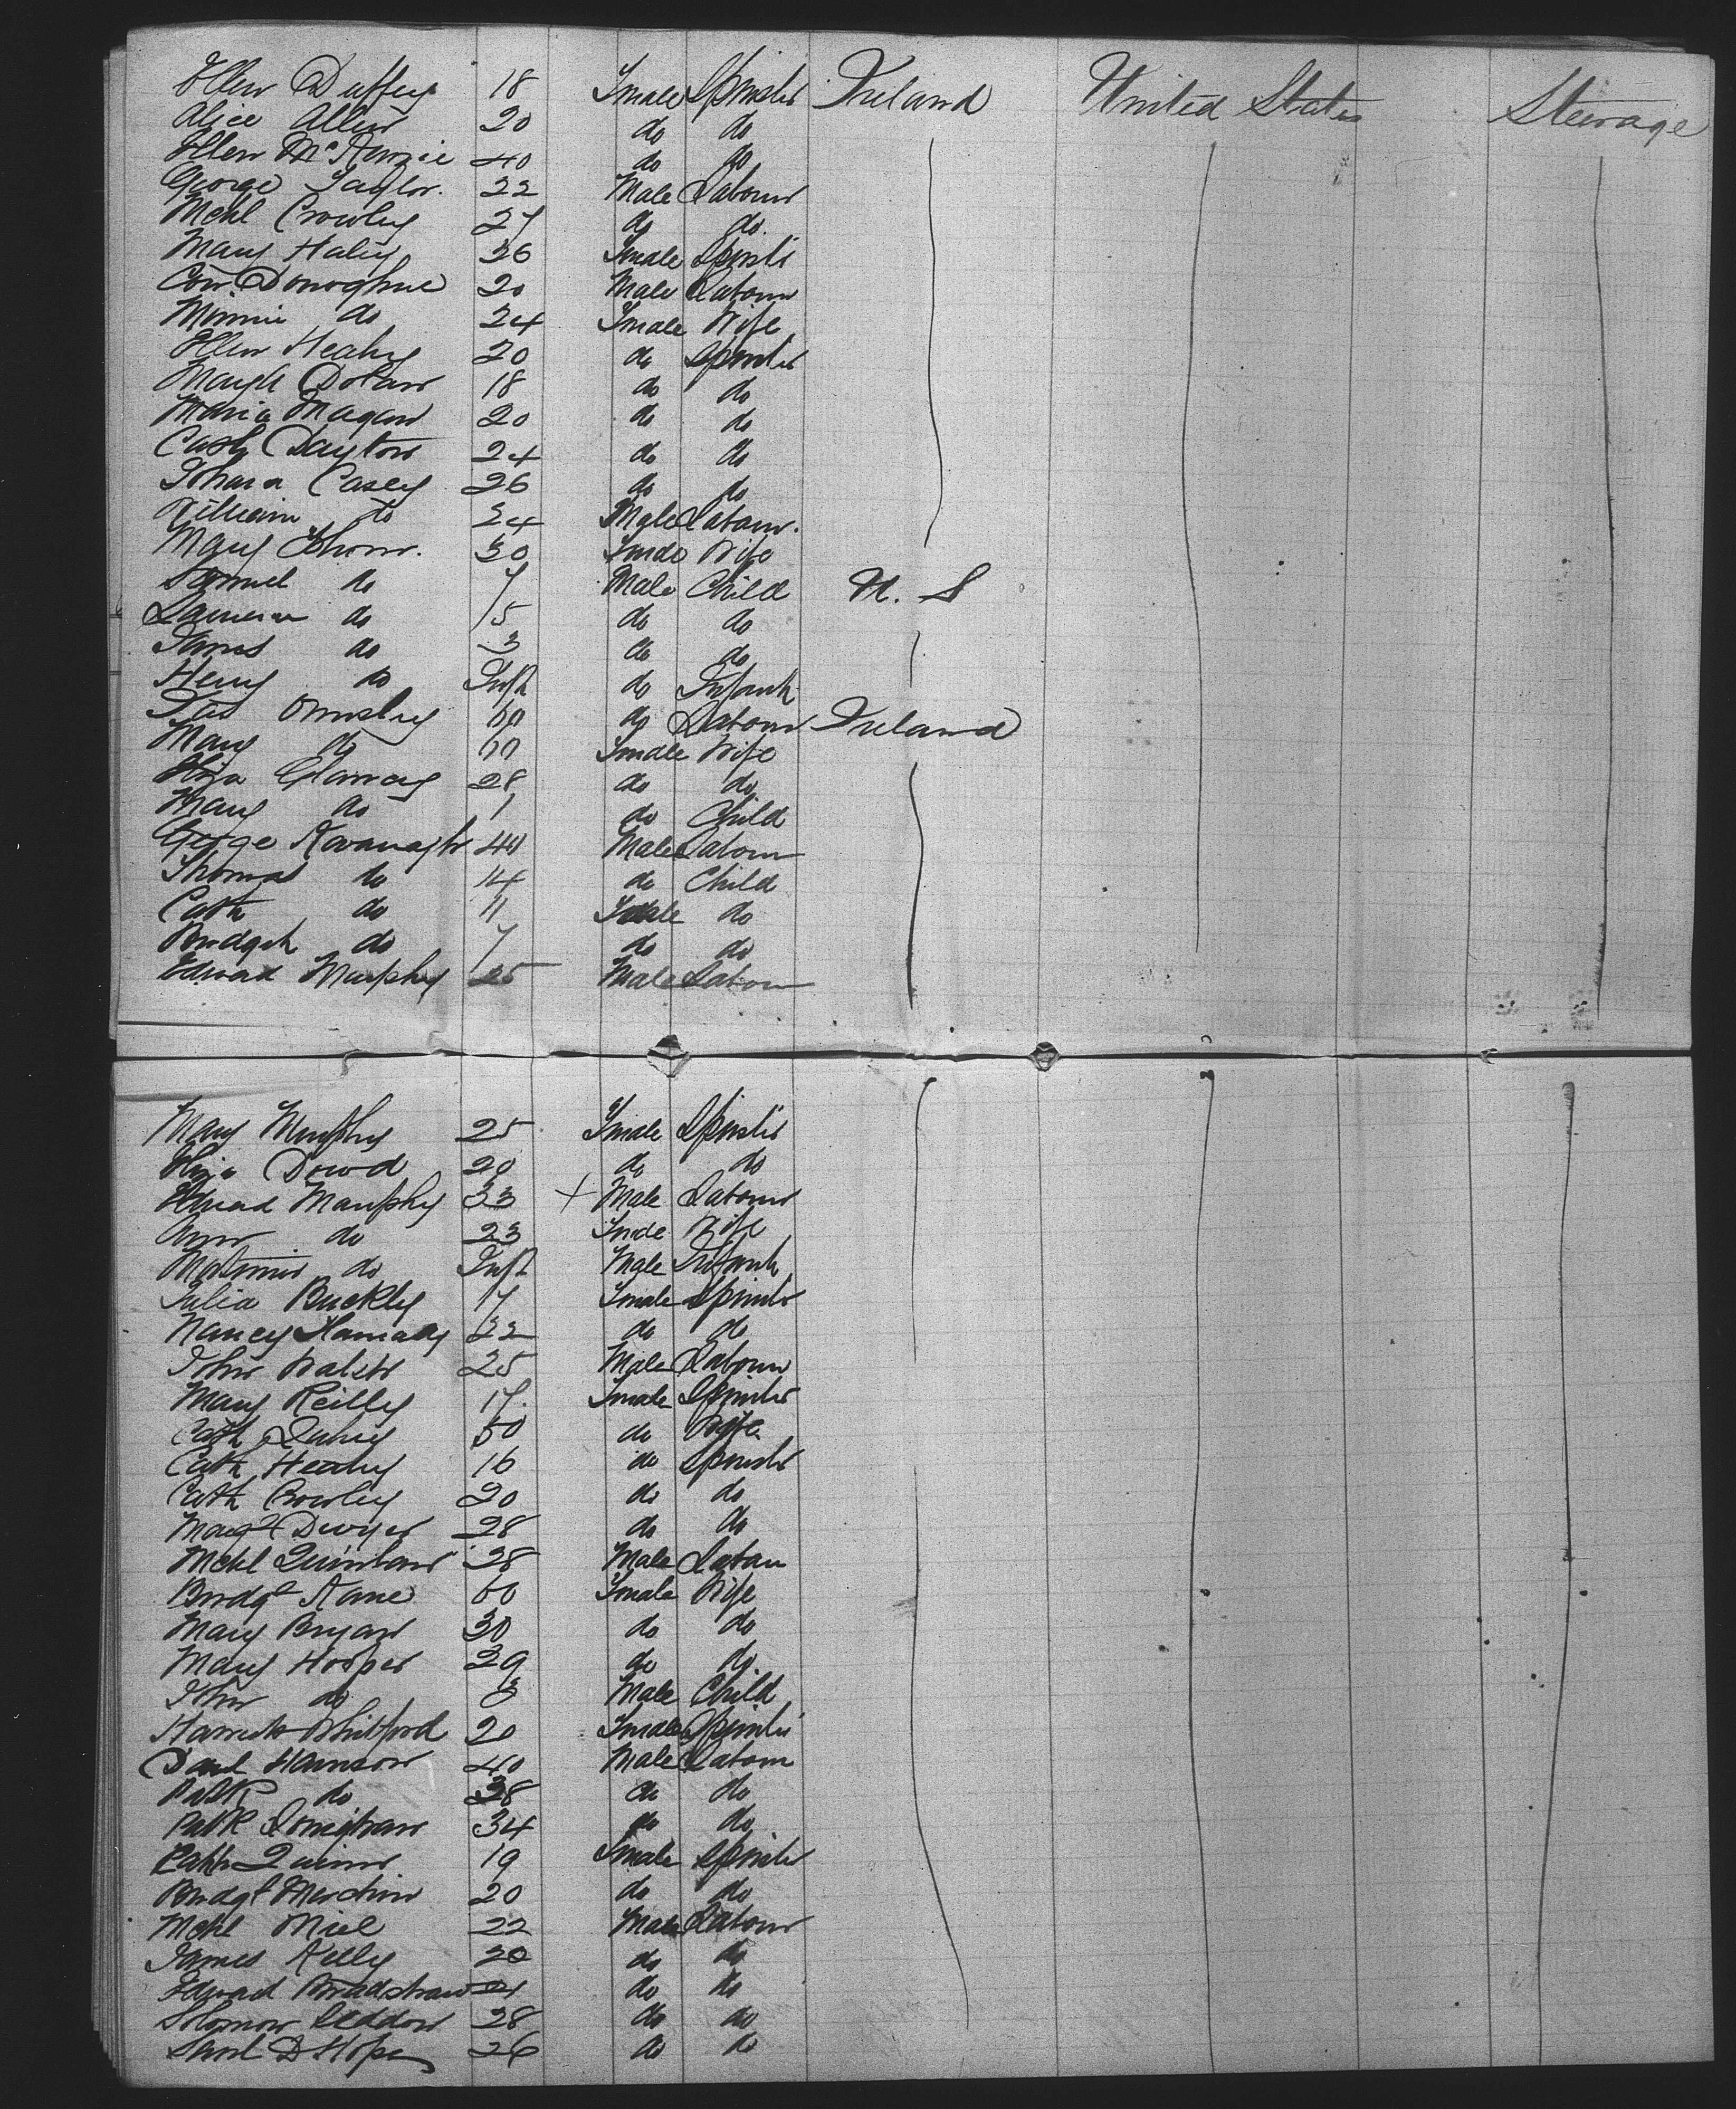 Ellen Duffey 18 Female Spinster Ireland United States Steerage
Alice Allen 20 do do
Ellen McKenzie 40 do do
George Taylor. 22 Male Labour
Mchl Crowley 27 do do.
Mary Haley 26 Female Spinster
Con Donoghue 20 Male Labour
Minnie do 24 Female Wife
Ellen Healey 20 do Spinster
Margt Dolan 18 do do
Maria Magan 20 do do
Cath Dayton 24 do do
Johana Casey 26 do do
William do 24 Male Labour.
Mary 30 Female Wife
Samuel do 7 Male Child U. S
do 5 do do
James do 3 do do
Henry do Inft do Infant
Ormsby 60 do Labour Ireland
Mary do Female Wife
Eliza 28 do do
Mary do 1 do Child
George Kavanagh 40 Male Labour
Thomas do 14 do Child
Cath do 11 Female do
Bridget do 7 do do
Edward Murphy 25 Male Labour
Mary Murphy 25 Female Spinster
Eliza Dowd 20 do do
Edward 33 + Male Labour
Ann do 23 Female Wife
do Inft Male Infant
Julia Buckley 17 Female Spinster
Nancy 22 do do
John Walsh 25 Male Labour
Mary Reilly 17. Female Spinster
Cath 50 do Wife
Cath Healey 16 do Spinster
Cath Crowley 20 do do
Margt Dwyer 28 do do
Mchl Quinlan 28 Male Labour
Bridgt Kane 60 Female Wife
Mary Bryan 30 do do
Mary Hooper 29 do do
John do 3 Male Child
Harriet Whitford 20 Female Spinster
40 Male Labour
Patk do 38 do do
Patk Lonighan 34 do do
Quinn 19 Female Spinster
Bridgt 20 do do
Mchl Niel 22 Male Labour
James Kelly 20 do do
Edward Bradshaw 21 do do
Solomon Seddon 28 do do
Saml D Hope 26 do do